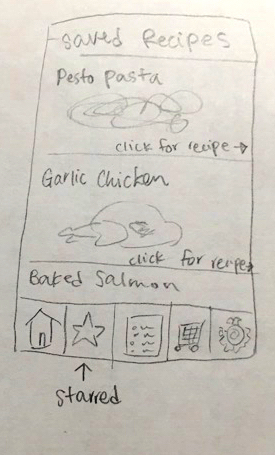 Saved Recipes
Pesto pasta
click for recipe →
Garlic Chicken
click for recipe→
Baked Salmon
↑
starred